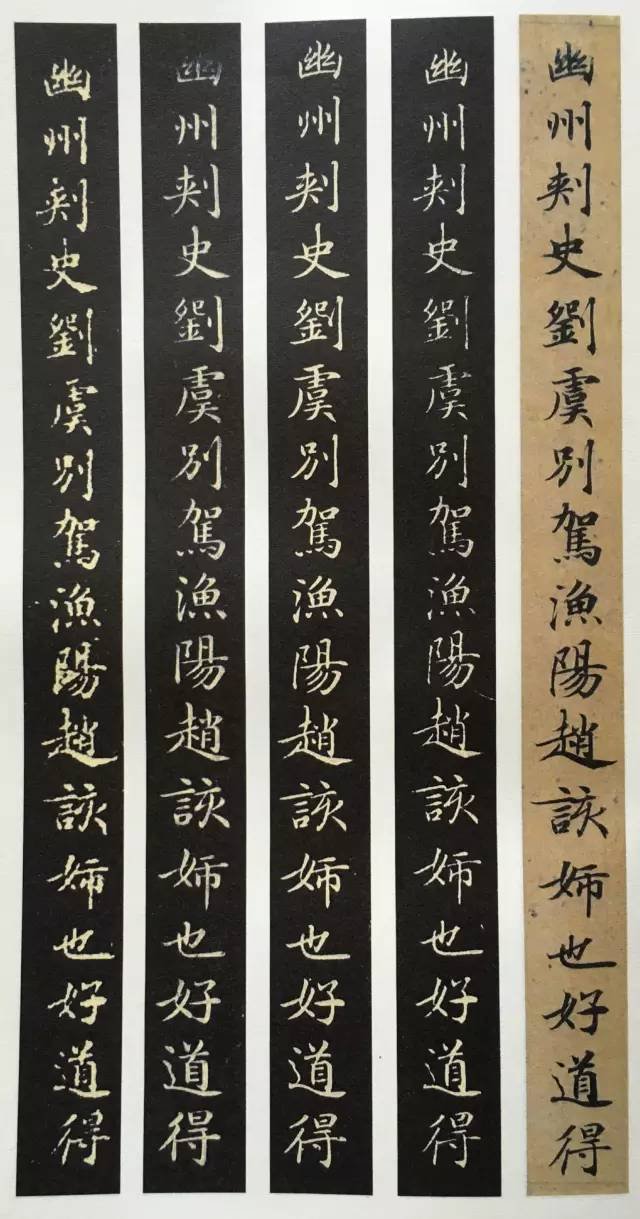 幽州刾史劉虞別駕漁陽趙該姉也好道得
幽州刾史劉虞別駕漁陽趙該姉也好道得
幽州刾史劉虞別駕漁陽趙該姉也好道得
幽州刾史劉虞別駕漁陽趙該姉也好道得
幽州刾史劉虞別駕漁陽趙該姉也好道得